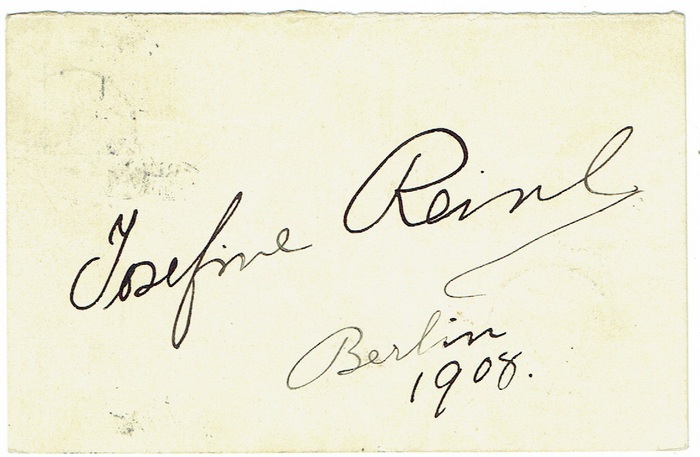 Josefine Reinl
Berlin
1908.